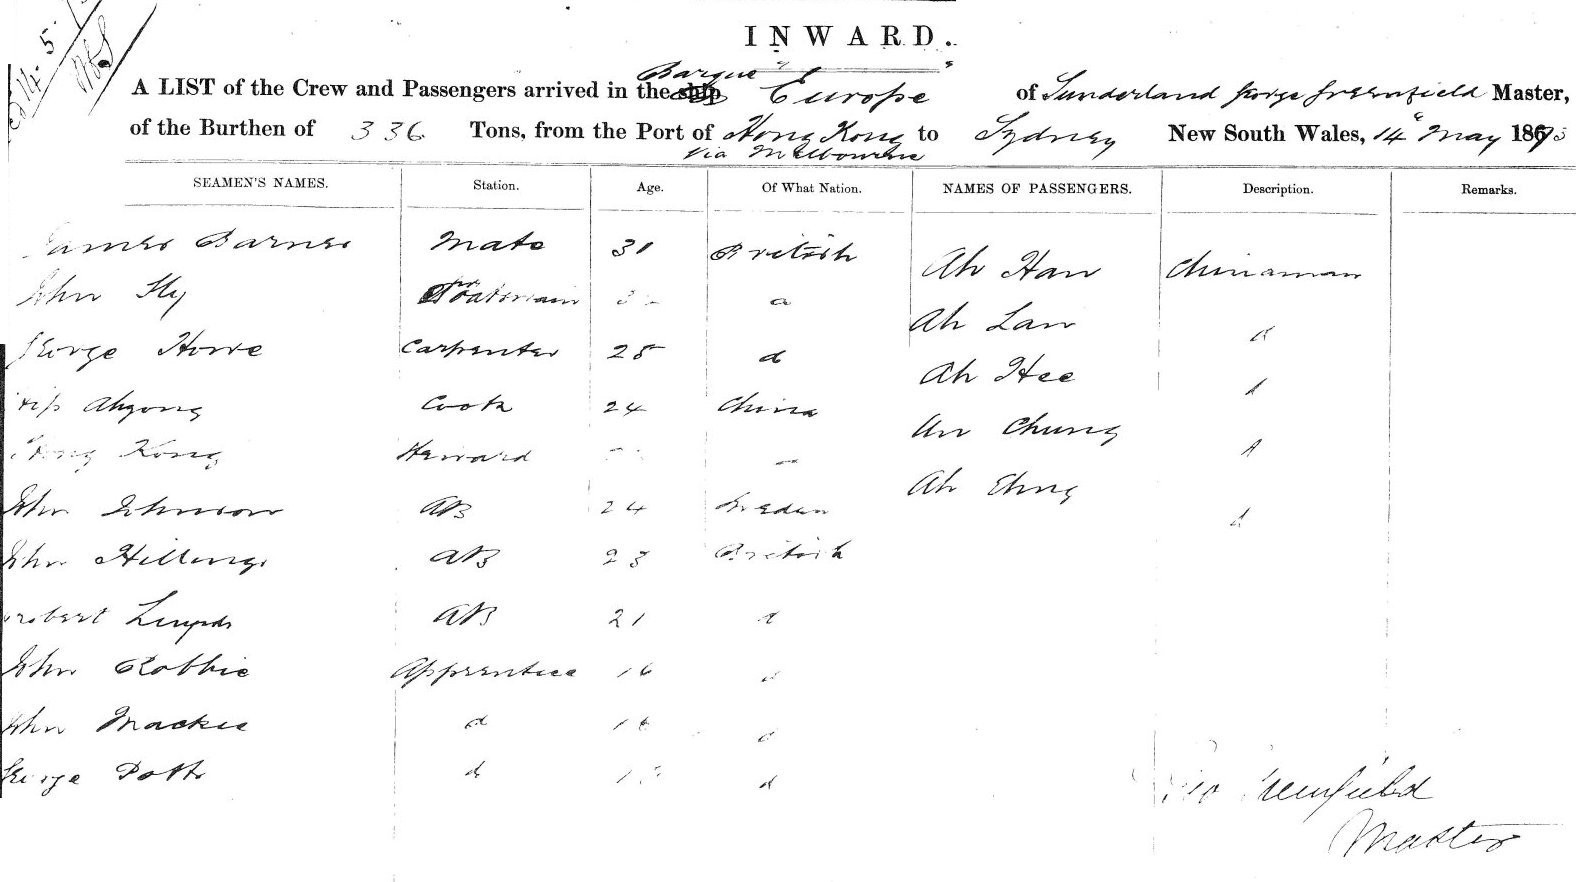 INWARD.
A LIST of the Crew and Passengers arrived in the ship Barque "Europe" of Sunderland George Greenfield Master,
of the Burthen of 336 Tons, from the Port of Hong Kong via Melbourne to Sydney New South Wales, 14 May 187
SEAMEN'S NAMES. Station. Age. Of What Nation. NAMES OF PASSENGERS. Description. Remarks.
James Barnes Mate 31 British Ah Han Chinaman
John Boatswain
Ah Lan d
George Howe Carpenter 25 d
Ah Hee d
Ahgong Cook 24 China
Ah Chung d
Kong Steward
Ah
John Johnson AB 24 Sweden
d
John AB 23 British
Robert AB 21 d
John Robbie Apprentice 16 d
John Mackie d 16 d
George Potts d d
Geo Greenfield
Master